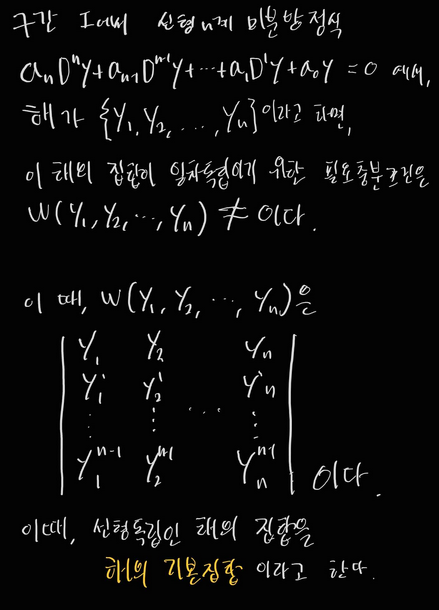 구간 I에서 선형 n계 미분방정식
aₙDⁿY+aₙ₋₁Dⁿ⁻¹Y+⋯+a₁D¹Y+a₀Y = 0 에서,
해가 {Y₁, Y₂, ..., Yₙ}이라고 하면,
이 해의 집합이 일차독립이기 위한 필요충분조건은
W(Y₁, Y₂, ⋯, Yₙ) ≠ 이다.
이 때, W(Y₁, Y₂, ⋯, Yₙ)은
| Y₁ Y₂ Yₙ |
| Y₁' Y₂' Y'ₙ |
| ⋮ ⋮ ⋯ ⋮ |
| Y₁ⁿ⁻¹ Y₂ⁿ⁻¹ Yₙⁿ⁻¹ | 이다.
이때, 선형독립인 해의 집합을
해의 기본집합 이라고 한다.